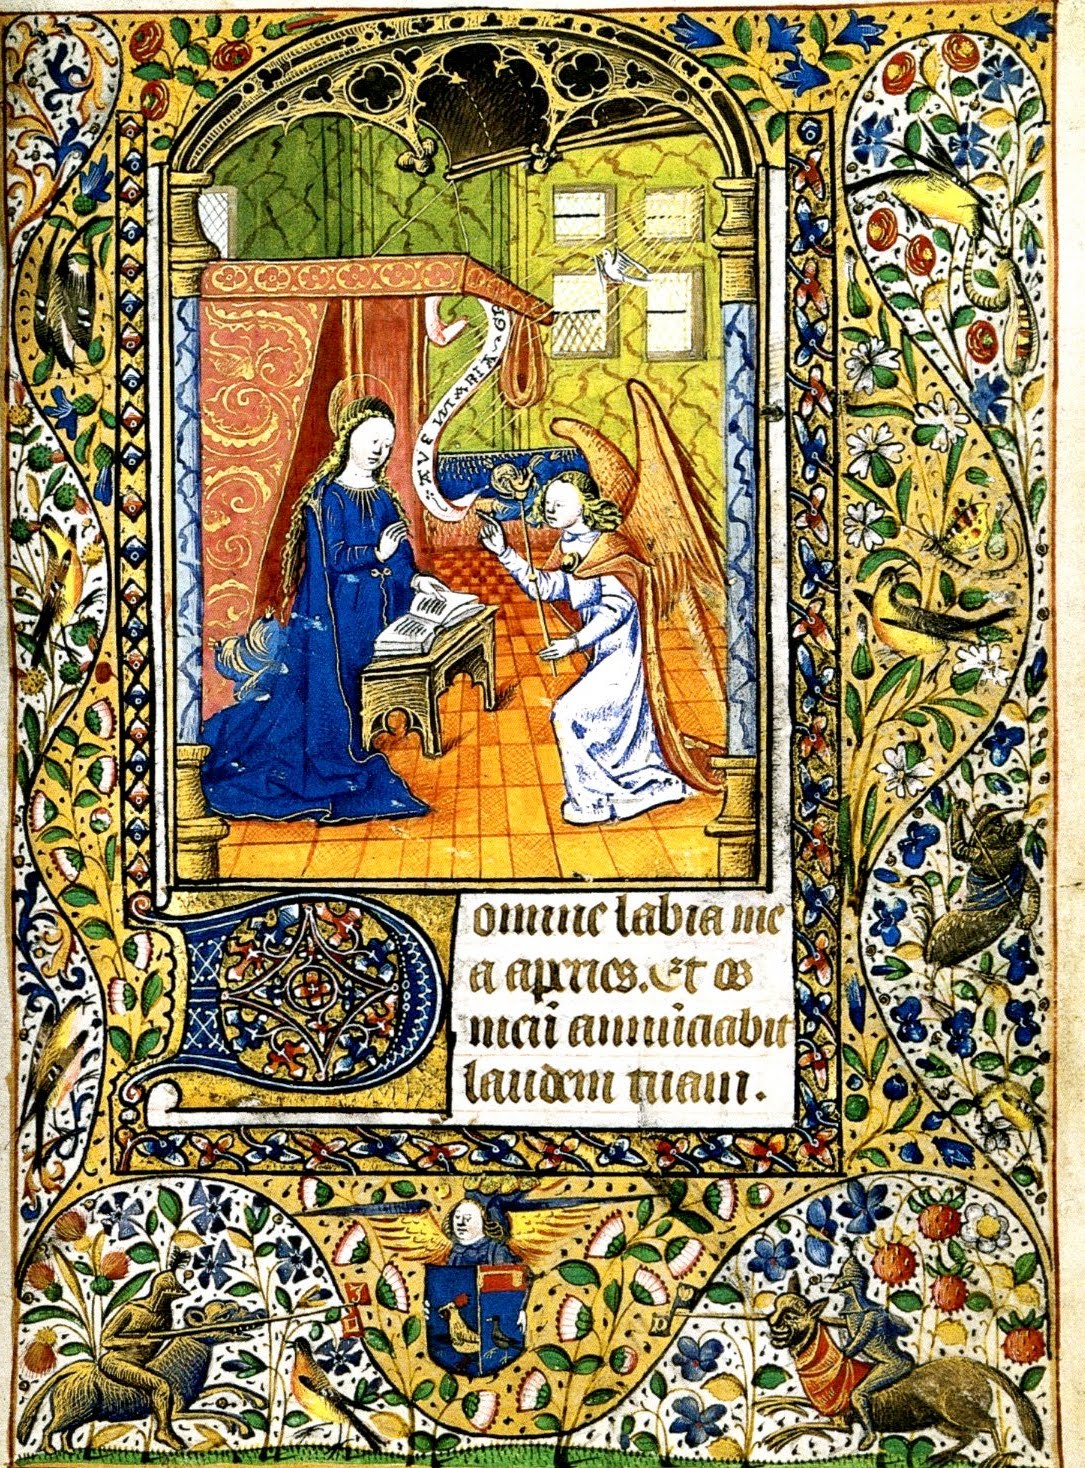 AVE MARIA
Domine labia me
a aperies. Et os
meū annūciabit
laudem tuam.